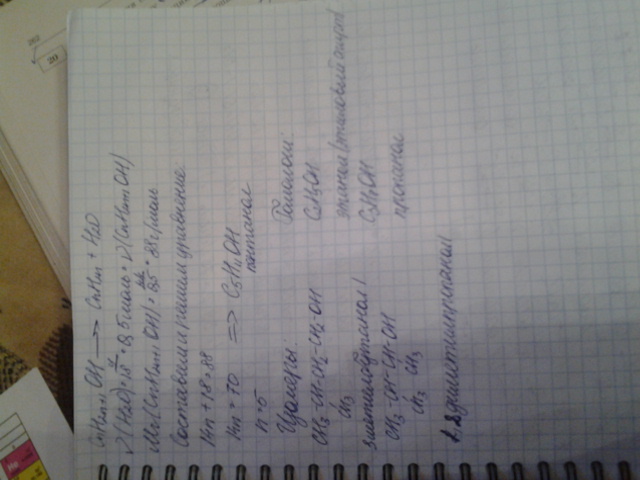 CnH2n+1OH → CnH2n + H2O
ν(H2O) = 9/18 = 0,5 моль = ν(CnH2n+1OH)
Mr(CnH2n+1OH) = 44/0,5 = 88 г/моль
Составим и решим уравнение
14n + 18 = 88
14n = 70 ⇒ C5H11OH
n = 5 пентанол
Изомеры: Гомологи:
CH3-CH-CH2-CH2-OH C2H5OH
CH3 этанол (этиловый спирт)
C3H7OH
CH3-CH-CH-OH пропанол
CH3 CH3
20